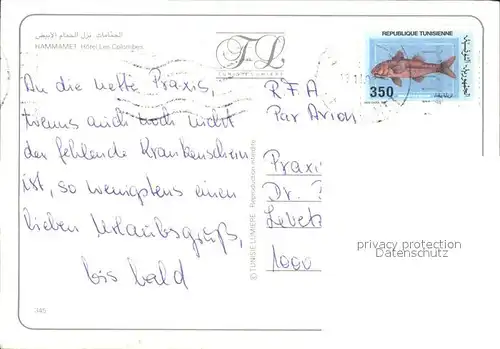 الحمامات نزل الحمام الأبيض
HAMMAMET Hôtel Les Colombes
T&L
TUNISIE LUMIERE
REPUBLIQUE TUNISIENNE
350
An die nette Praxis,
wenns auch noch nicht
der fehlende Krankenschein
ist, so wenigstens einen
lieben Urlaubsgruß,
bis bald
R.F.A
Par Avion
Praxi
Dr.
1000
© TUNISIE LUMIERE Reproduction interdite
privacy protection
Datenschutz
345